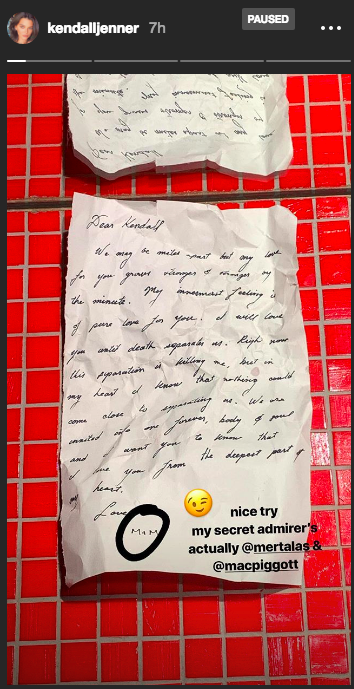 kendalljenner 7h
PAUSED
Dear Kendall
Dear Kendall
We may be miles apart but my love
for you grows stronger & stronger by
the minute. My innermost feeling is
of pure love for you. I will love
you until death separates us. Right now
this separation is killing me, but in
my heart I know that nothing could
come close to separating us. We are
united into one forever, body & soul
and I want you to know that
I love you from the deepest part of
my heart.
Love
M+M
nice try
my secret admirer's
actually @mertalas &
@macpiggott